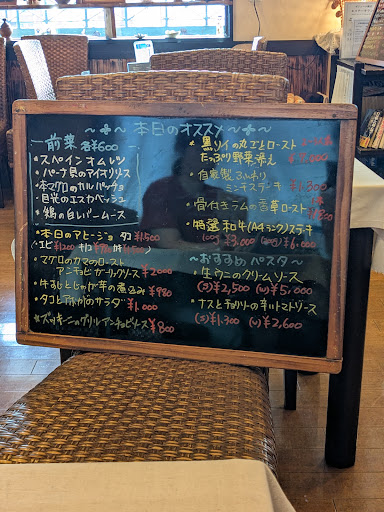 本日のオススメ
前菜 各¥600
・スペインオムレツ
・パーナ貝のアイオリソース
・本マグロのカルパッチョ
・目光のエスカベッシュ
・鶏の白レバームース
・本日のアヒージョ タコ ¥1,500
マグロのカマのロースト
アンチョビガーリックソース ¥2000
牛すじとじゃが芋の煮込み ¥980
タコとアボカドのサラダ
¥1,000
ズッキーニのグリルアンチョビソース ¥800
黒ソイの丸ごとロースト
たっぷり野菜添え
自家製ふんわり
ミンチステーキ ¥1,300
骨付きラムの香草ロースト
特選和牛(A4ランク)ステーキ
¥3,000 ¥6,000
おすすめパスタ
生ウニのクリームソース
(S) ¥2,500 (W) ¥5,000
ナスとチョリソーの辛いトマトソース
(S) ¥1,300 (W) ¥2,600